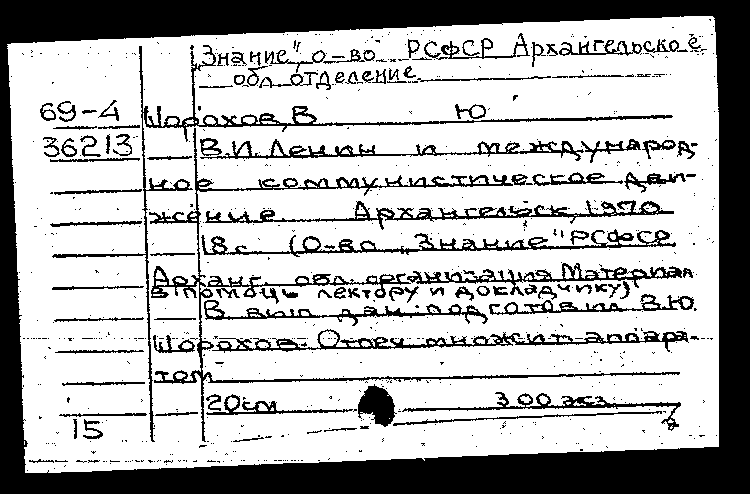 „Знание", о-во РСФСР Архангельское
обл. отделение
69-4 Шорохов, В Ю
36213 В.И. Ленин и международ-
ное коммунистическое дви-
жение. Архангельск, 1970
18 с. (О-во „Знание" РСФСР.
Арханг. обл. организация Материал
в помощь лектору и докладчику)
В вып. дан: подготовил В.Ю.
Шорохов. Отпеч. множит. аппара-
том
20см 300 экз.
15